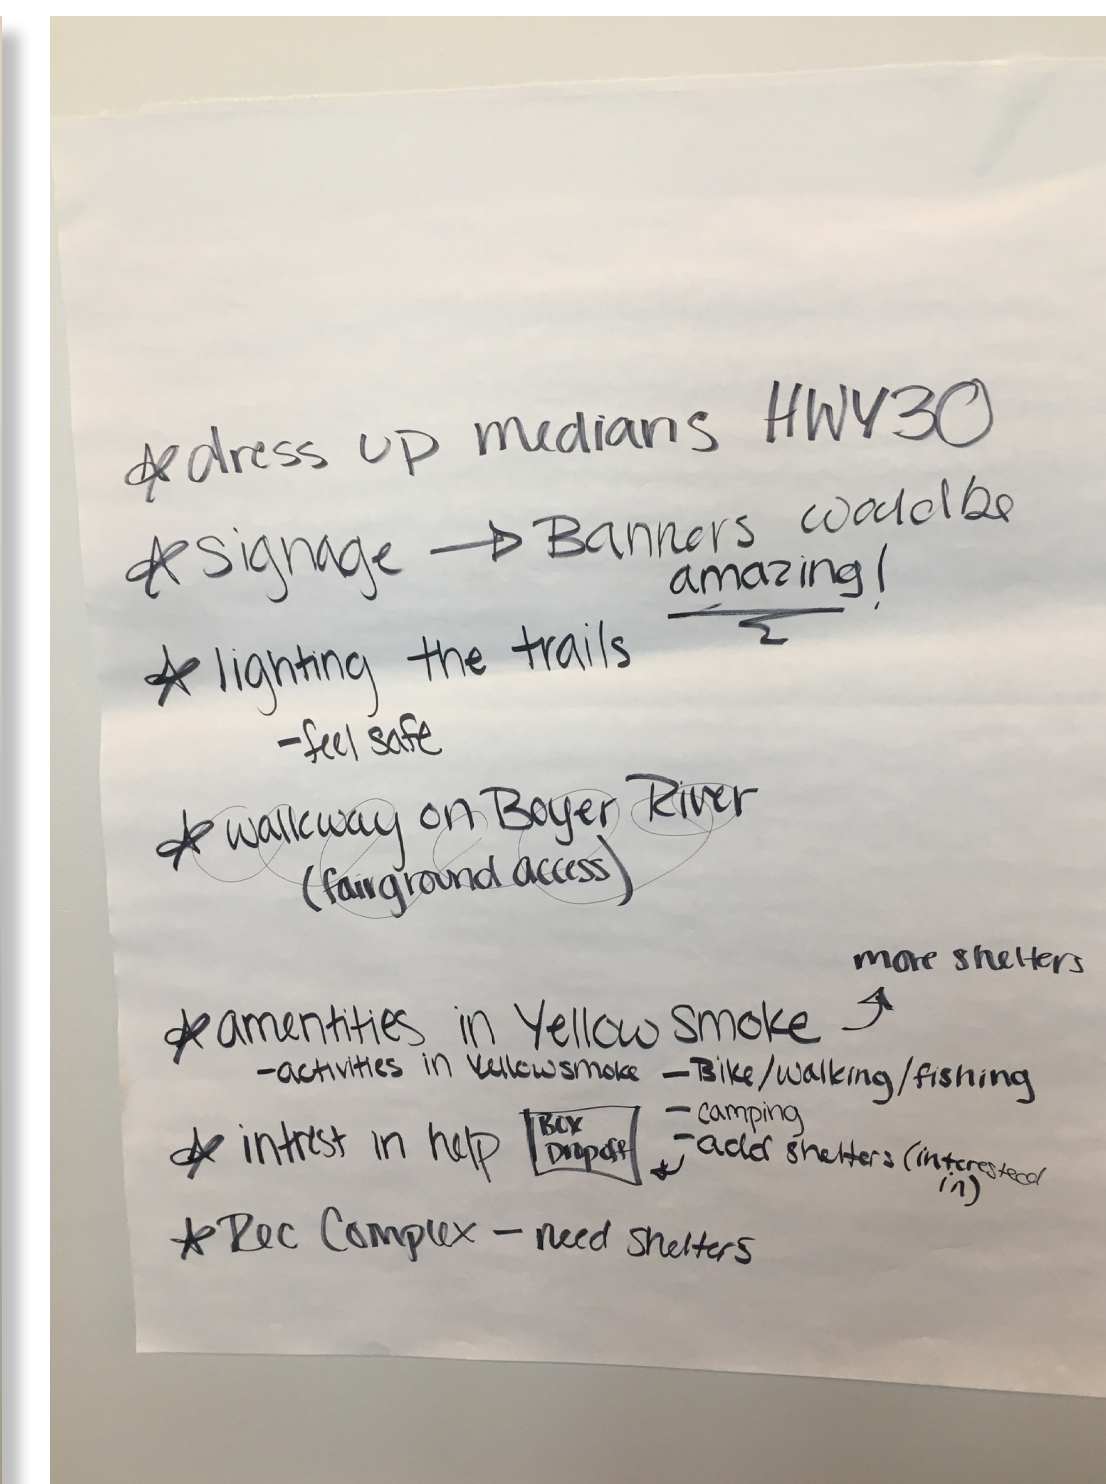 dress up medians HWY30
signage → Banners would be
amazing!
lighting the trails
-feel safe
walkway on Boyer River
(fairground access)
more shelters
amentities in Yellow Smoke
-activities in Yellowsmoke - Bike/walking/fishing
- camping
intrest in help Box Dropoff - add shelters (interestead
in)
Rec Complex - need shelters